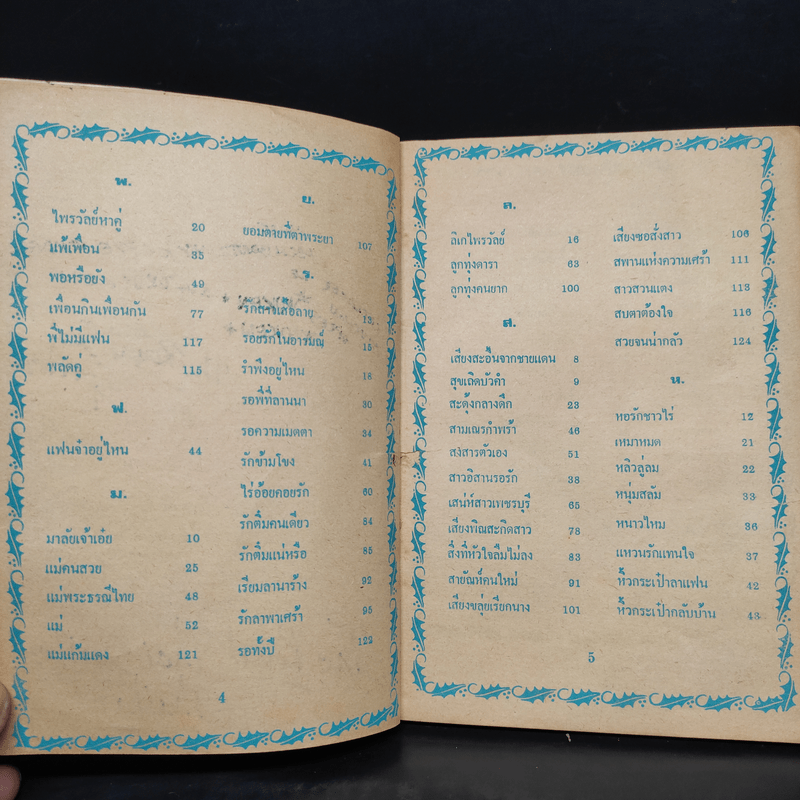 พ.
ไพรวัลย์หาคู่ 20
แพ้เพื่อน 35
พอหรือยัง 49
เพื่อนกินเพื่อนกัน 77
พี่ไม่มีแฟน 117
พลัดคู่ 115
ฟ.
แฟนจ๋าอยู่ไหน 44
ม.
มาลัยเจ้าเอ๋ย 10
แม่คนสวย 25
แม่พระธรณีไทย 48
แม่ 52
แม่แก้มแดง 121
ย.
ยอมตายที่ตาพระยา 107
ร.
รักสาวเสื้อลาย 13
รอยรักในอารมณ์ 15
รำพึงอยู่ไหน 18
รอพี่ที่ลานนา 30
รอความเมตตา 34
รักข้ามโขง 41
ไร่อ้อยคอยรัก 60
รักติ๋มคนเดียว 84
รักติ๋มแน่หรือ 85
เรียมลานาร้าง 92
รักลาพาเศร้า 95
รอทั้งปี 122
4
ล.
ลิเกไพรวัลย์ 16
ลูกทุ่งดารา 63
ลูกทุ่งคนยาก 100
ส.
เสียงสะอื้นจากชายแดน 8
สุขเถิดบัวคำ 9
สะดุ้งกลางดึก 23
สามเณรกำพร้า 46
สงสารตัวเอง 51
สาวอิสานรอรัก 38
เสน่ห์สาวเพชรบุรี 65
เสียงพิณสะกิดสาว 78
สิ่งที่หัวใจลืมไม่ลง 83
สายัณห์คนใหม่ 91
เสียงขลุ่ยเรียกนาง 101
เสียงซอสั่งสาว 106
สพานแห่งความเศร้า 111
สาวสวนแตง 113
สบตาต้องใจ 116
สวยจนน่ากลัว 124
ห.
หอรักชาวไร่ 12
เหมาหมด 21
หลิวลู่ลม 22
หนุ่มสลัม 33
หนาวไหม 36
แหวนรักแทนใจ 37
หิ้วกระเป๋าลาแฟน 42
หิ้วกระเป๋ากลับบ้าน 43
5